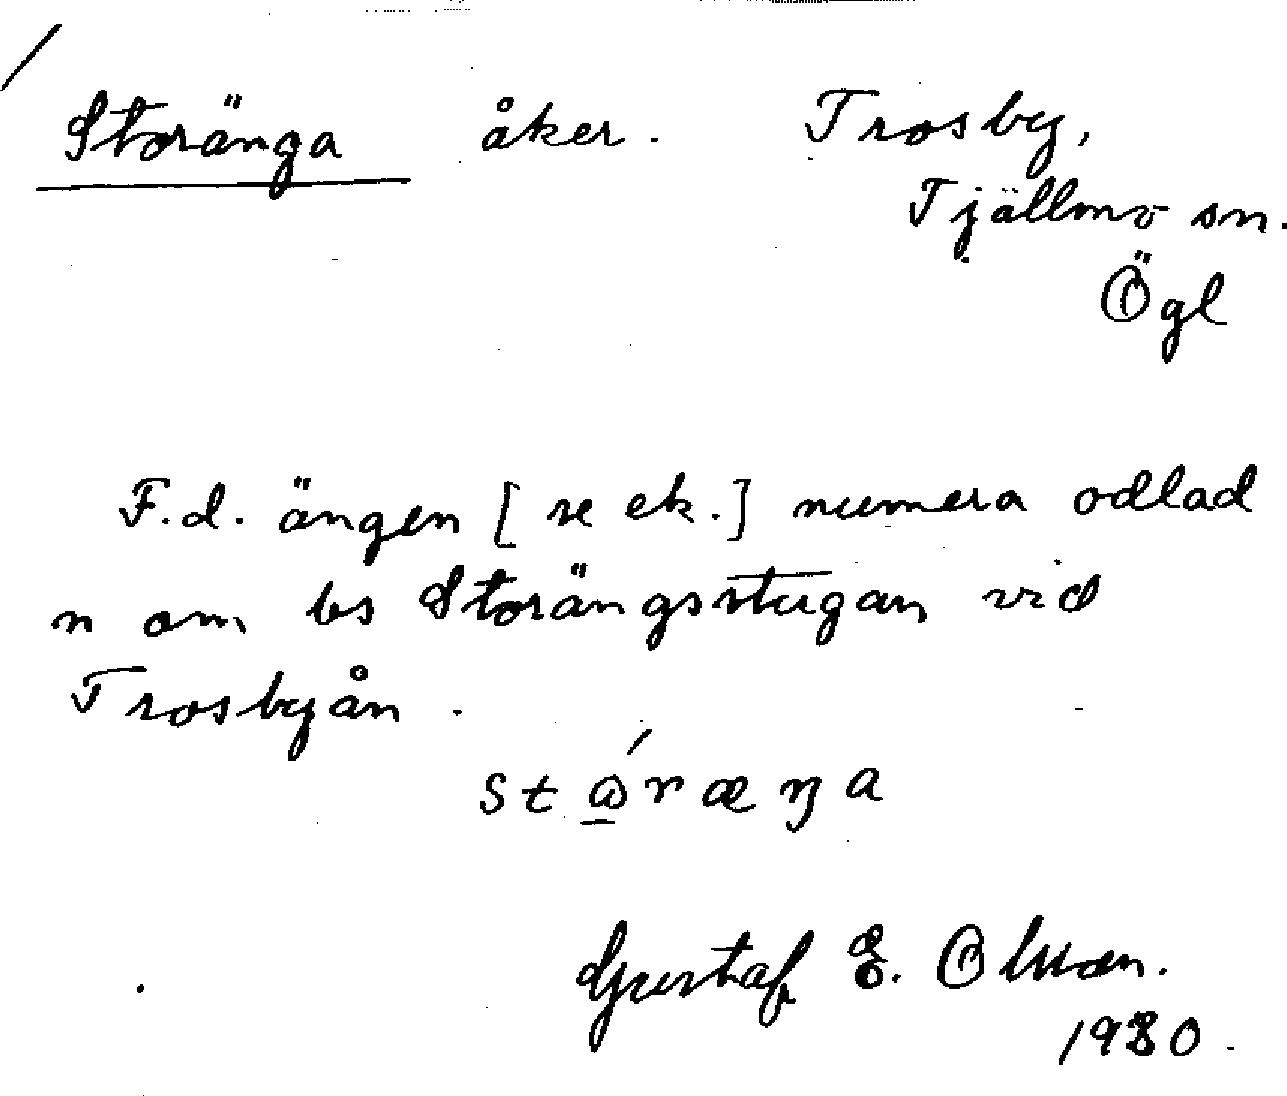 Storänga åker. Trosby,
Tjällmo sn.
Ögl
F.d. ängen [se ek.] numera odlad
n om bs Storängsstugan vid
Trosbyån.
stώ̲ræŋa
Gustaf E. Olsson.
1930.